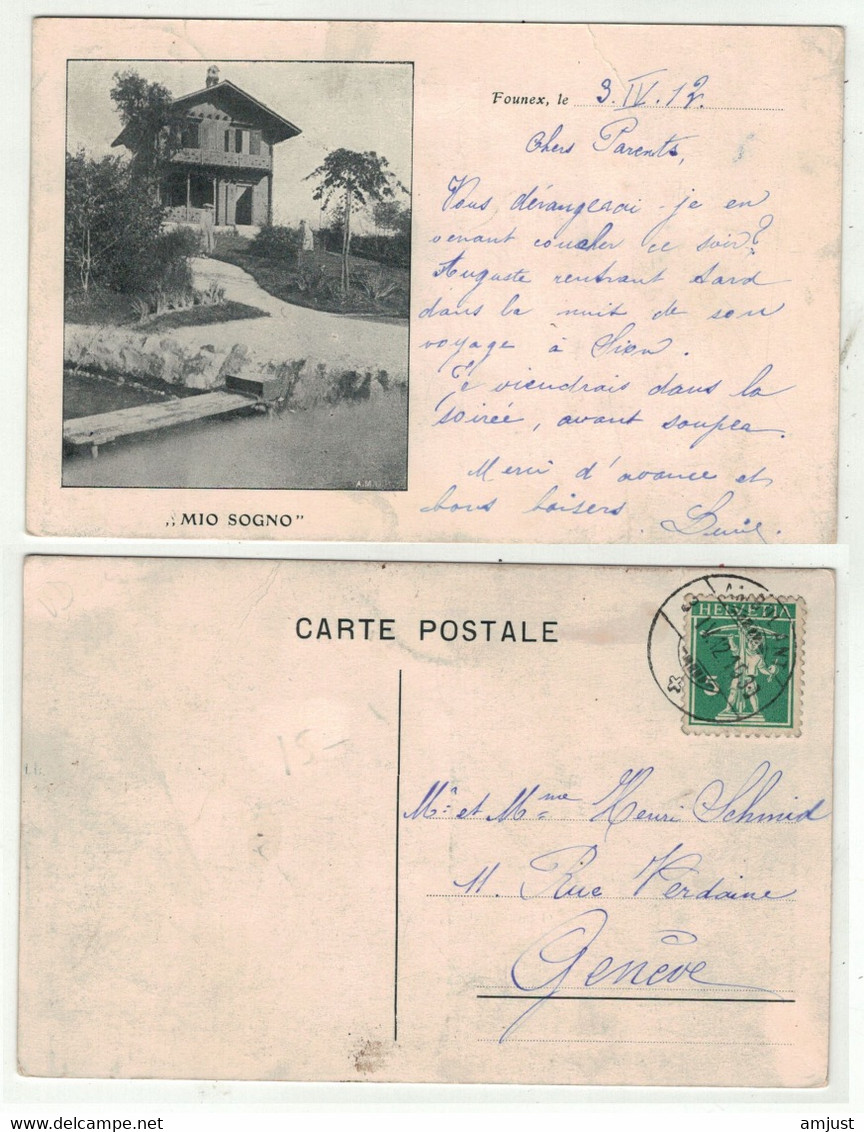 Founex, le 3. IV. 12.
Chers Parents,
Vous dérangerai-je en
venant coucher ce soir?
Auguste rentrant tard
dans la nuit de son
voyage à Sion.
Je viendrais dans la
soirée, avant souper.
Merci d'avance et
bons baisers
A.M.
„MIO SOGNO"
CARTE POSTALE
HELVETIA
5
15-
Mr et Mme Henri Schmid
11. Rue Verdaine
Genève
amjust